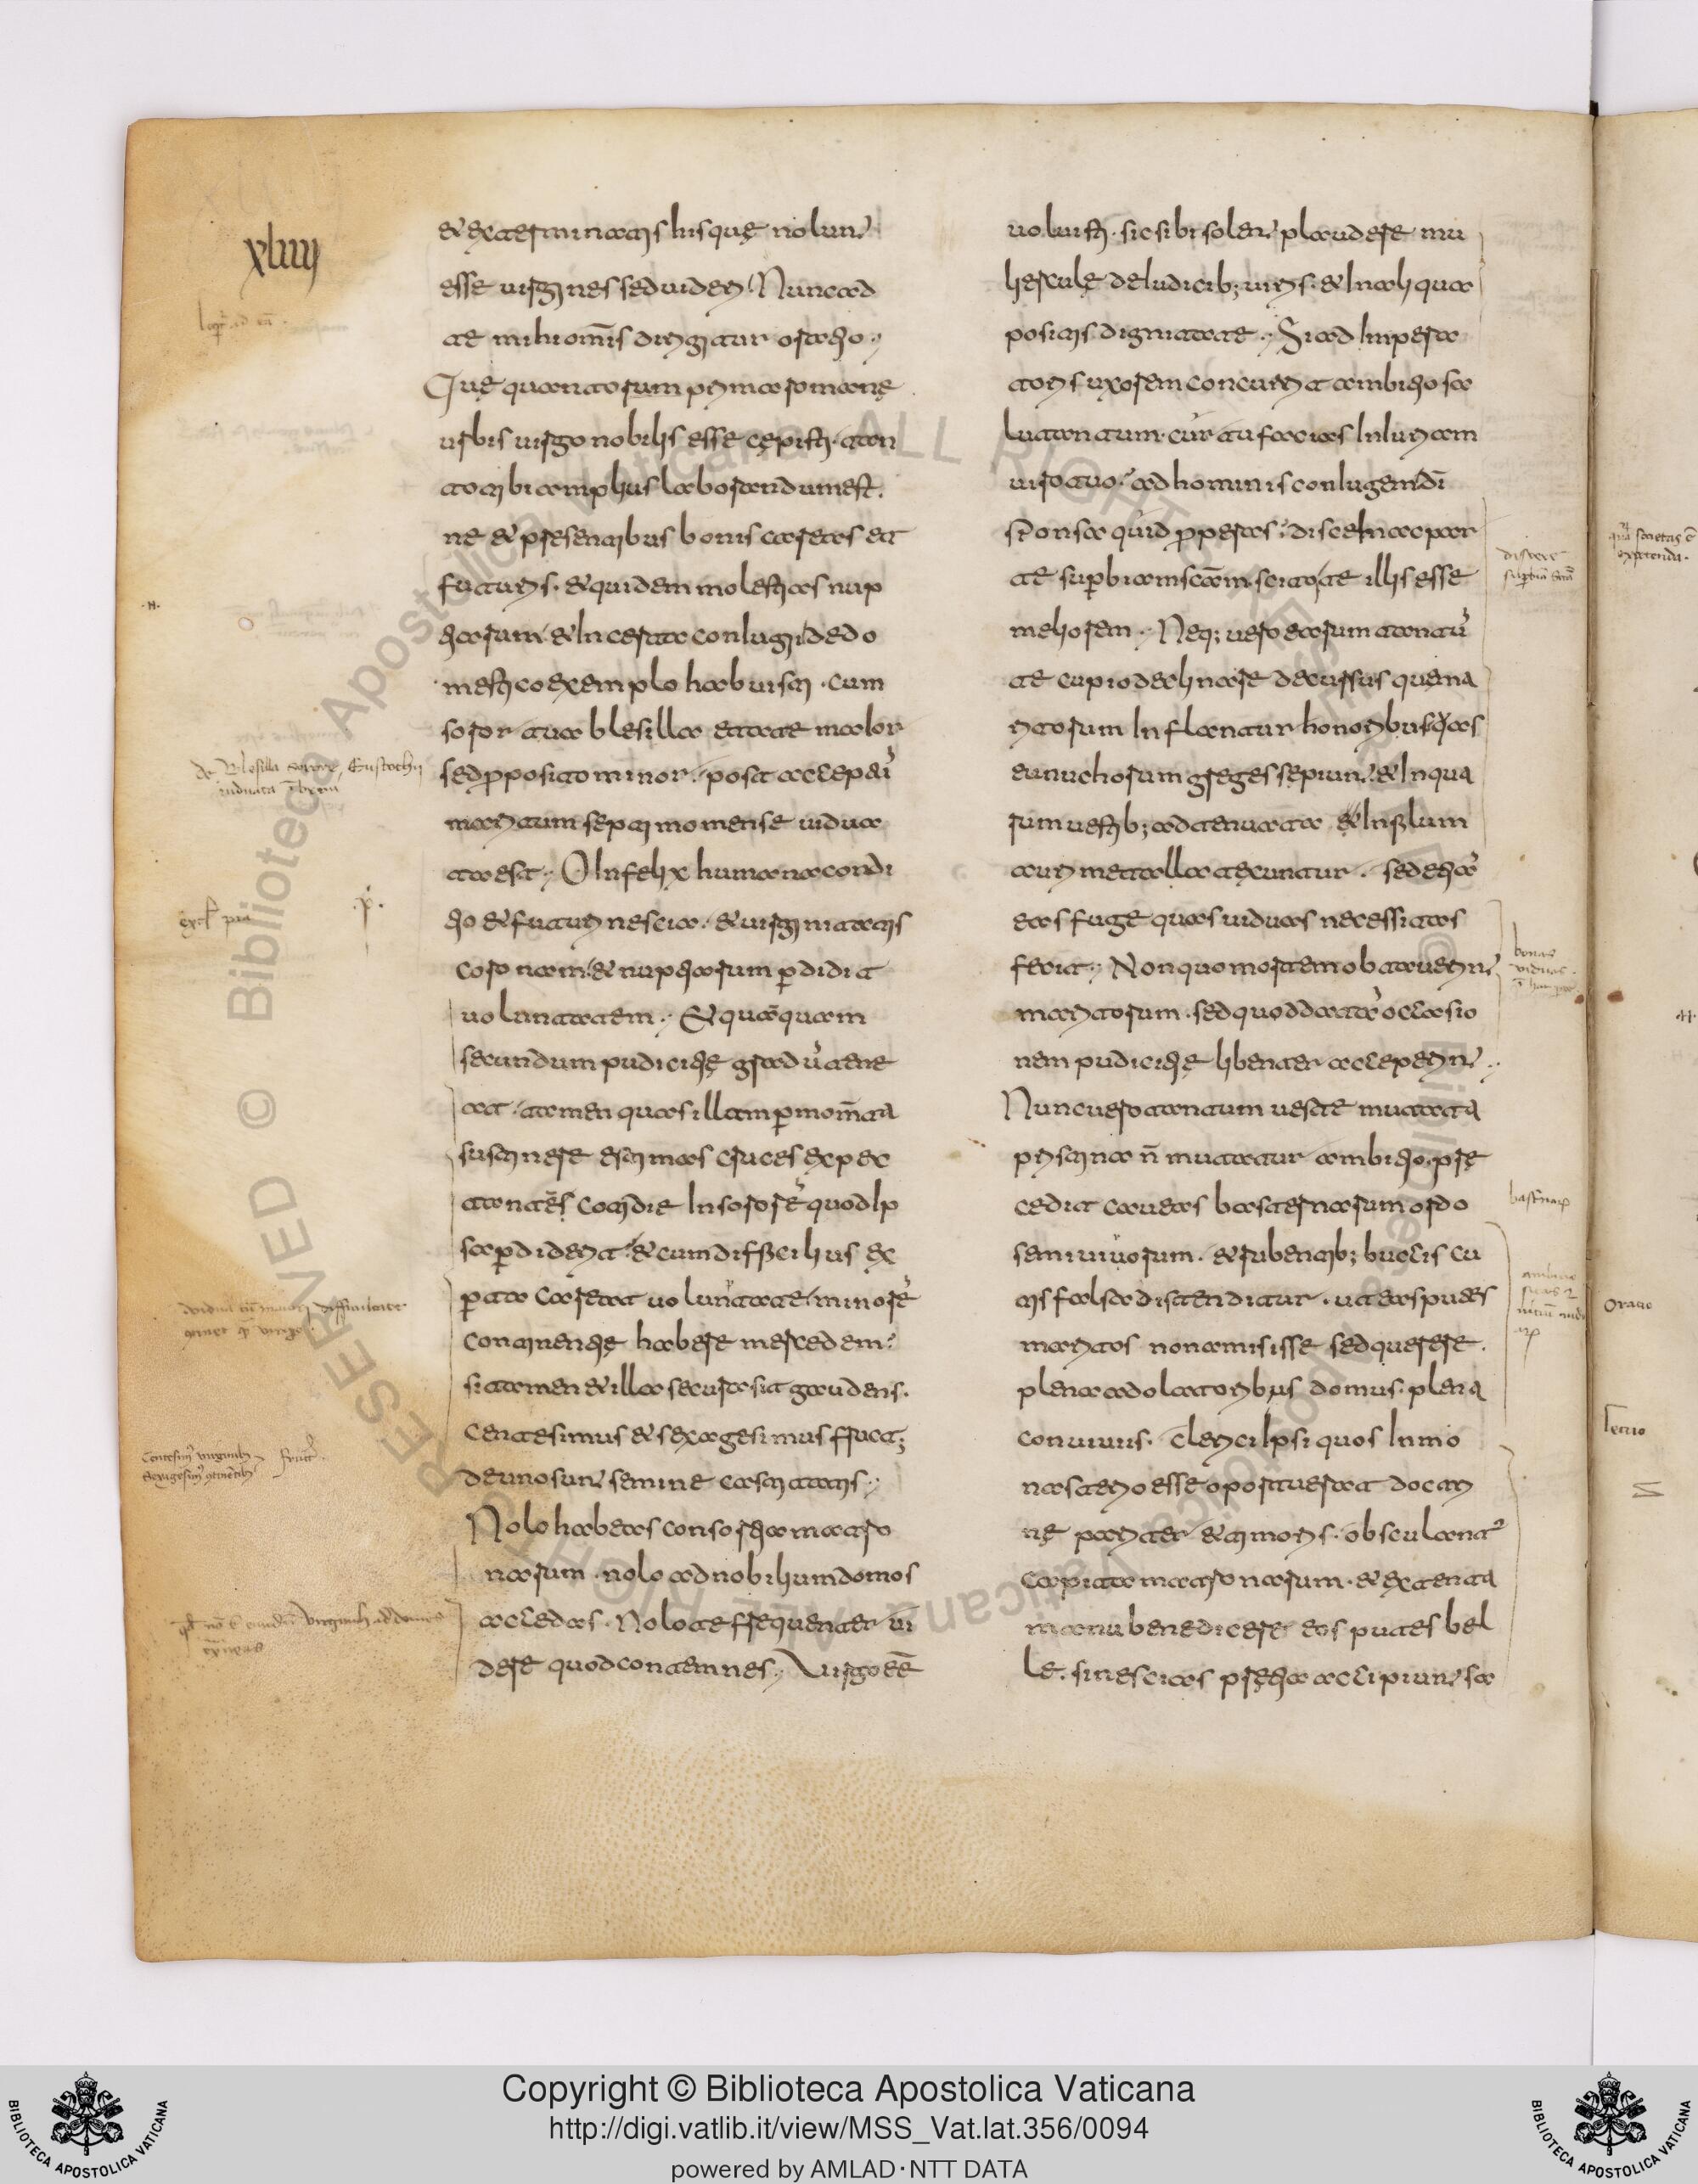 xliiij
& exterminatis his quę nolunt
esse uirgines sed uideri. Nunc ad
te mihi om̅is dirigatur oratio.,
Quę quanto rum prima romanę
urbis uirgo nobilis esse cępisti. tan
to tibi amplius laborandum est.
ne & presentibus bonis careas et
futuris. & quidem molestias nup
tiarum & Incerta coniugii dedo
mestico exemplo habuisti. cum
soror tua blesilla etate maior
sed proposito minor. post acceptu̅
maritum septimo mense uidua
ta est., O Infelix humana condi
tio & futuri nescia. & uirginitatis
coronam & nuptiarum perdidit
uoluntatem., Et qua̅quam
secundum pudicitię gradu̅ tene
at. tamen quas illam per mom̅ta
sustinere estimas cruces expec
tante̅s cotidie In sorore quod Ip
sa perdiderit. & cum difficilius ex
perta careat uoluntate. minore̅
continentię habere mercedem?
sit amen & illa secura sit gaudens.
Centesimus & sexagesimus fruct;
de uno sunt semine castitatis.,
Nolo habeas consortia matro
narum. nolo ad nobilium domos
accedas. Nolo te frequenter ui
dere quod contemnes., Uirgo ee̅
uoluisti. sic sibi solent plaudere mu
lierculę de Iudicib; uiris. & In ali qua
positis dignitate., Si ad Impera
toris uxorem concurrit ambitio sa
lutantum. cur tu facias Iniuriam
uiro tuo? ad hominis coniugem di̅
sponsa quid properas? disce In hac par
te superbiam sc̅am. scito te illis esse
meliorem., Neq; uero earum tantu̅
te cupio declinare decursus quema
ritorum Inflantur honoribus q̅as
eunuchorum greges sepiunt? & In qua
rum uestib; adtenuata & In filum
auri metalla texuntur. sed etia̅
eas fuge quas uiduas necessitas
fecit., Non quo mortem obtauerint
maritorum. sed quod data̅ occasio
nem pudicitię libenter acceperint.,
Nunc uero tantum ueste mutata
pristina n̅ mutatur ambitio. prę
cedit caueas basternarum ordo
semiuiuorum. & rubentib; buccis cu
tis falsa distenditur. ut eas putes
maritos non amisisse sed querere.
plena adolatoribus domus. plena
conuiuiis. clerici Ipsi quos In mo
nasterio esse oportuerat doctri
nę pariter & timoris. obsculant̅
capita matronarum. & extenta
manu benedicere eos putes uel
le. si nescias prętia accipiunt sa
de Blesilla sorore Eustochij
discere
superbia̅ sc̅a̅
bonas
uiduas
basternaru̅
oratio
lectio
Copyright © Biblioteca Apostolica Vaticana
http://digi.vatlib.it/view/MSS_Vat.lat.356/0094
powered by AMLAD·NTT DATA
BIBLIOTECA APOSTOLICA VATICANA
BIBLIOTECA APOSTOLICA VATICANA